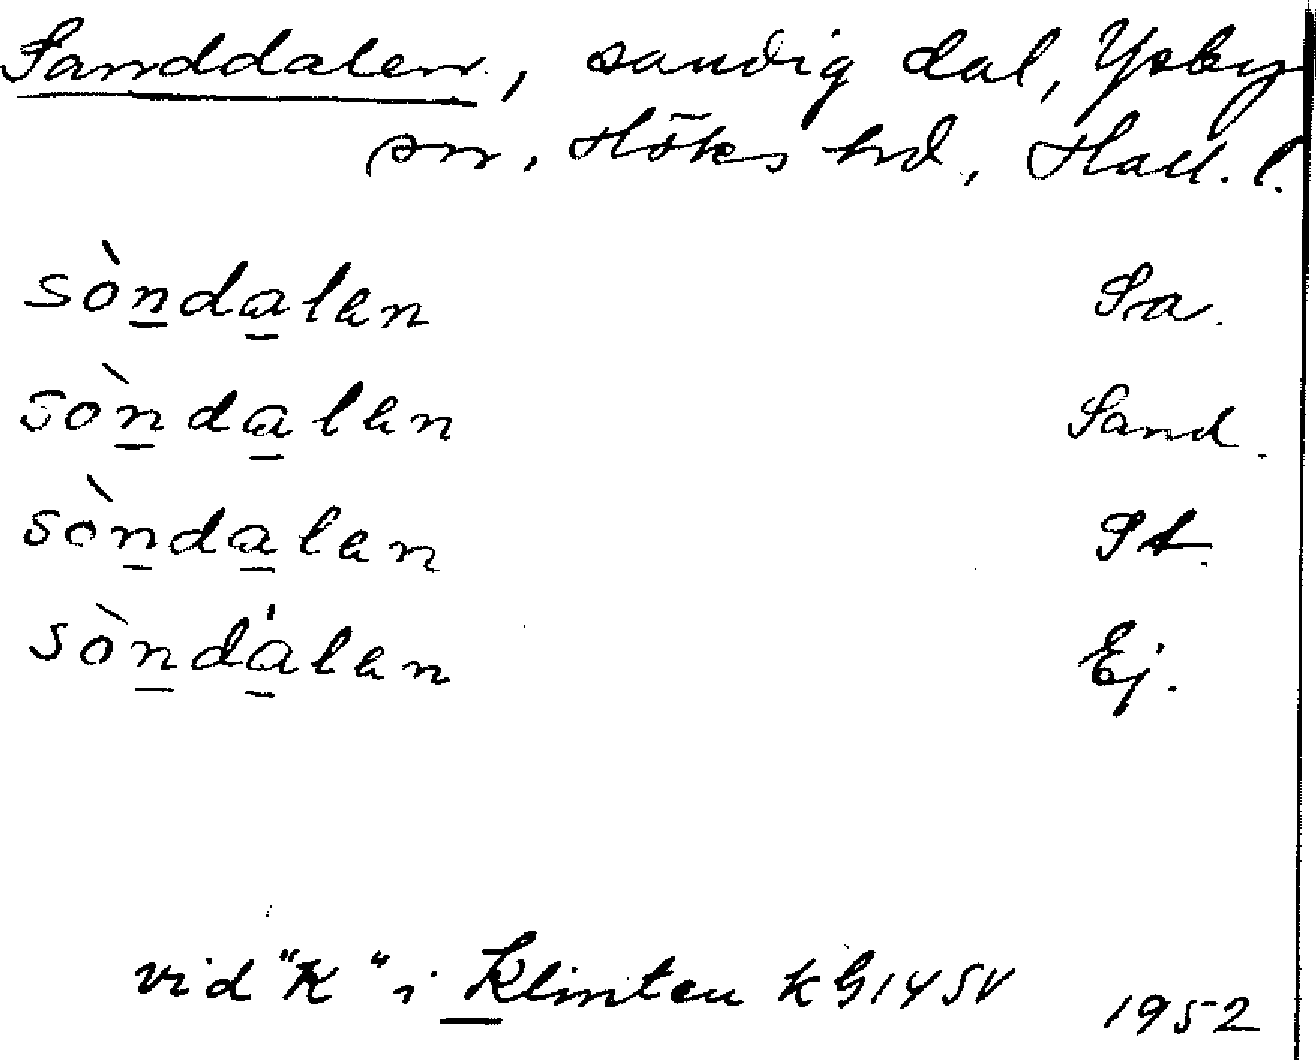 Sanddalen, sandig dal, Ysby
sn, Höks hd, Hall. l.
sòndalen Sa.
sòndalen Sand.
sòndalen St.
sòndálen Ej.
vid "K" i Klinten kG14SV 1952